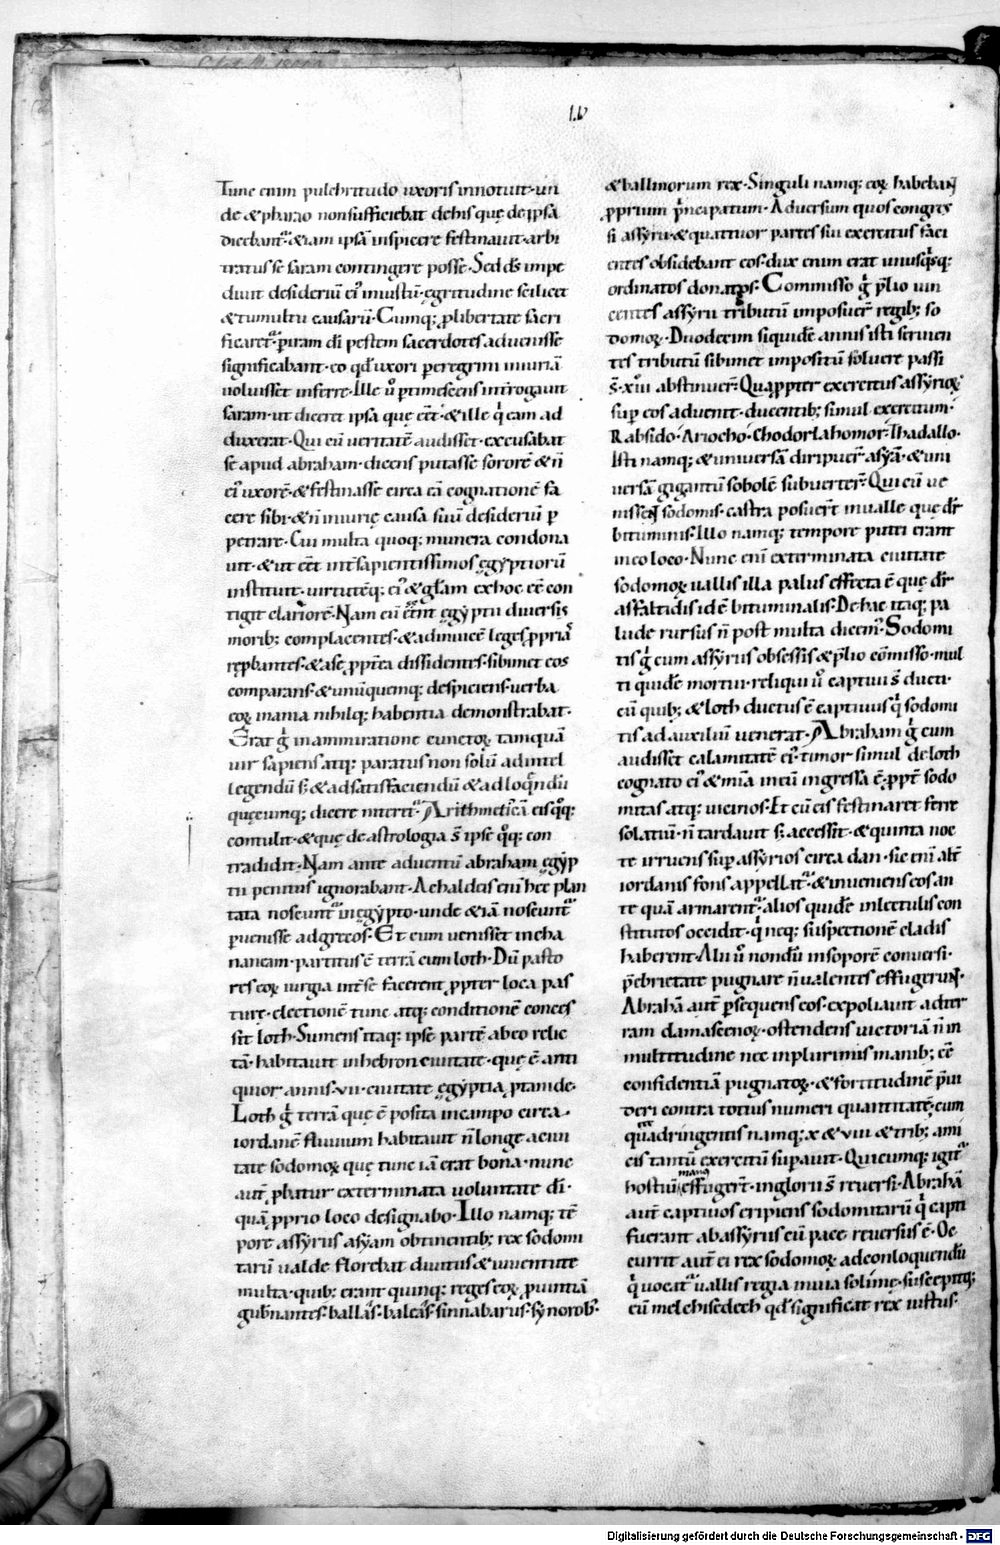 I.V
Tunc enim pulchritudo uxoris innotuit · un
de & pharao non sufficiebat de his quę de ipsa
dicebant᷑ · & iam ipsā inspicere festinauit · arbi
tratus se saram contingere posse · Sed dſ impe
diuit desideriū ei᷒ iniustū · ęgritudine scilicet
& tumultu causarū · Cumq; ꝓ libertate sacri
ficaret᷑ · ꝑ iram dī pestem sacerdotes aduenisse
significabant · eo qd̄ uxori peregrini iniuriā
uoluisset inferre · Ille ů ꝑtimescens intrrogauit
saram · ut diceret ipsa quę eēt · & ille qͥ eam ad
duxerat · Qui cū ueritatē audisset · excusabat
se apud abraham · dicens putasse sororē & n̄
ei᷒ uxorē · & festinasse circa eā cognationē fa
cere sibi · & n̄ iniurię causa suū desideriū ꝑ
petrare · Cui multa quoq; munera condona
uit · & ut eēt int̄ sapientissimos ęgẏptiorū
instituit · uirtutēq; ei᷒ & głam ex hoc eē con
tigit clariorē · Nam cū eēnt ęgẏptii diuersis
morib; complacentes · & adinuicē leges ꝓpriaſ
reꝓbantes · & a se ꝓpt̄ea dissidentes · sibimet eos
comparans · & unūquemq; despiciens · uerba
eoꝝ inania nihilq; habentia demonstrabat ·
Erat gͥ in ammiratione cunctoꝝ tamquā
uir sapiens atq; paratus non solū ad intel
legendū s; & ad satisfaciendū & ad loqͥndū
quęcumq; dicere nitert᷑ · Arithmeticā eis qͦq;
contulit · & quę de astrologia s̄ ipse qͦq; con
tradidit · Nam ante aduentū abraham ęgẏp
tii penitus ignorabant · A chaldeis eni hęc plan
tata noscunt᷑ in ęgẏpto · unde & iā noscunt᷑
ꝑuenisse ad grecos · Et cum uenisset in cha
naneam · partitus ē terrā cum loth · Dū pasto
res eoꝝ iurgia int̄ se facerent ꝓpter loca pas
turę · electionē tunc atq; conditionē conces
sit loth · Sumens itaq; ipse partē ab eo relic
tā · habitauit in hebron ciuitate · quę ē anti
quior annis · vii · ciuitate ęgẏptia ptanide ·
Loth gͥ terrā quę ē posita in campo circa ·
iordanē fluuium habitauit n̄ longe a ciui
tate sodomoꝝ quę tunc iā erat bona · nunc
aut̄ ꝓbatur exterminata uoluntate dī ·
quā ꝓprio loco designabo · Illo namq; tē
pore assẏrus asẏam obtinentib; rex sodomi
tarū ualde florebat diuitiis & iuuentute
multa · quib; erant quinq; reges eoꝝ prouintiā
gubnantes · ballas · baleas · sinnabarus · sẏnorob᷒ ·
& ballinorum rex · Singuli namq; eoꝝ habebant
ꝓprium pͥncipatum · Aduersum quos congres
si assẏrii · & quattuor partes sui exercitus faci
entes obsidebant eos · dux enim erat unusqͥsq;
ordinatos
Commisso gͥ p̄lio uin
centes assẏrii tributū imposuer̄ regib; so
domoꝝ · Duodecim siquidē annis isti seruien
tes tributū sibimet impositū soluere passi
s̄ · xiii abstinuer̄ · Quaꝓpter exercitus assẏrioꝝ
suꝑ eos aduenit · ducentib; simul exercitum ·
Rabsido · Ariocho · Chodorlahomor · Thadallo ·
Isti namq; & uniuersā diripuer̄ asẏā · & uni
uersā gigantū sobolē subuerter̄ · Qui cū ue
nissent sodomis · castra posuert̄ in ualle que dr̄
bituminis · Illo namq; tempore putei erant
in eo loco · Nunc eni exterminata ciuitate
sodomoꝝ uallis illa palus effecta ē quę dr̄
asfaltidis idē bituminalis · De hac itaq; pa
lude rursus n̄ post multa dicem᷒ · Sodomi
tis gͥ cum assẏriis obsessis & p̄lio cōmisso · mul
ti quidē mortui · reliqui ů captiui s̄ ducti ·
cū quib; & loth ductus ē captiuus qͥ sodomi
tis ad auxiliū uenerat · Abraham gͥ cum
audisset calamitatē ei᷒ · timor simul de loth
cognato ei᷒ & mīa in eū ingressa ē · ꝓpt̄ sodo
mitas atq; uicinos · Et cū eis festinaret ferre
solatiū · n̄ tardauit s; accessit · & quinta noc
te irruens suꝑ assẏrios circa dan · sic eni alt̄
iordanis fons appellat᷑ · & inueniens eos an
te quā armarent᷑ · alios quidē in lectulis con
stitutos occidit · qͥ neq; suspectionē cladis
haberent · Alii ů nondū in soporē conuersi ·
p̄ ebrietate pugnare n̄ ualentes effugerunt ·
Abrahā aut̄ ꝑsequens eos · expoliauit ad ter
ram damascenoꝝ · ostendens uictoriā n̄ in
multitudine nec in plurimis manib; eē
confidentiā pugnatoꝝ · & fortitudinē p̄ui
deri contra totius numeri quantitatē · cum
quadringentis namq; x & viii & trib; ami
cis tantū exercitū suꝑauit · Quicumq; igit᷑
hostiū manus effugert̄ · inglorii s̄ reuersi · Abrahā
aut̄ captiuos eripiens sodomitarū qͥ capti
fuerant ab assẏriis cū pace reuersus ē · Oc
currit aut̄ ei rex sodomoꝝ ad conloquendū
qͥ uocat᷑ uallis regia in uia solimę · suscepitq;
eū melchisedech qd̄ significat rex iustus ·
Digitalisierung gefördert durch die Deutsche Forschungsgemeinschaft - DFG